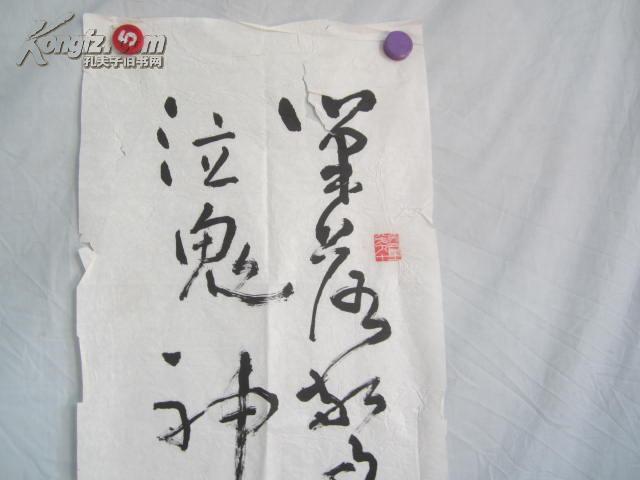 筆落驚風
泣鬼神
Kongfz.com
孔夫子旧书网
5